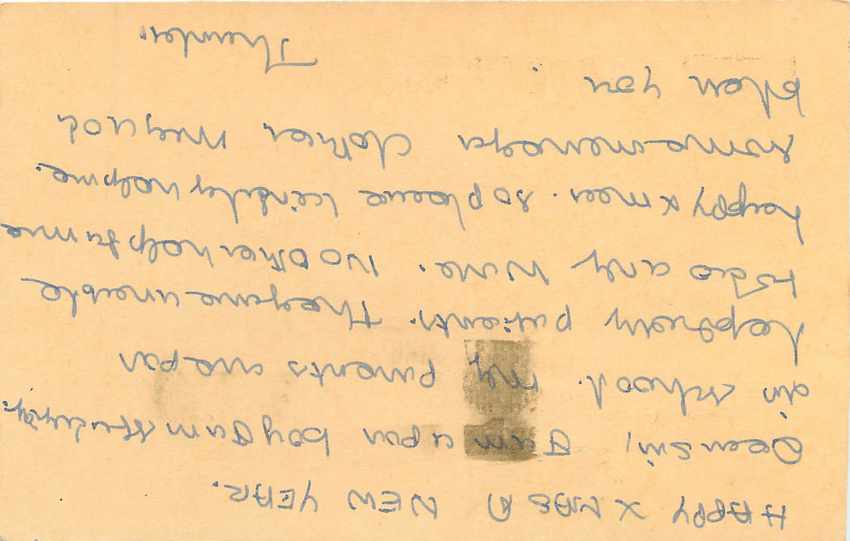 HAPPY X MAS & NEW YEAR.
Dear Sir, I am a poor boy I am studying
in school. my parents are poor
Leptrolly patients. They are unable
to do any work. No other help for me
happy x mas. so please kindly help me.
some money or clothes may God
bless you
Thanks.